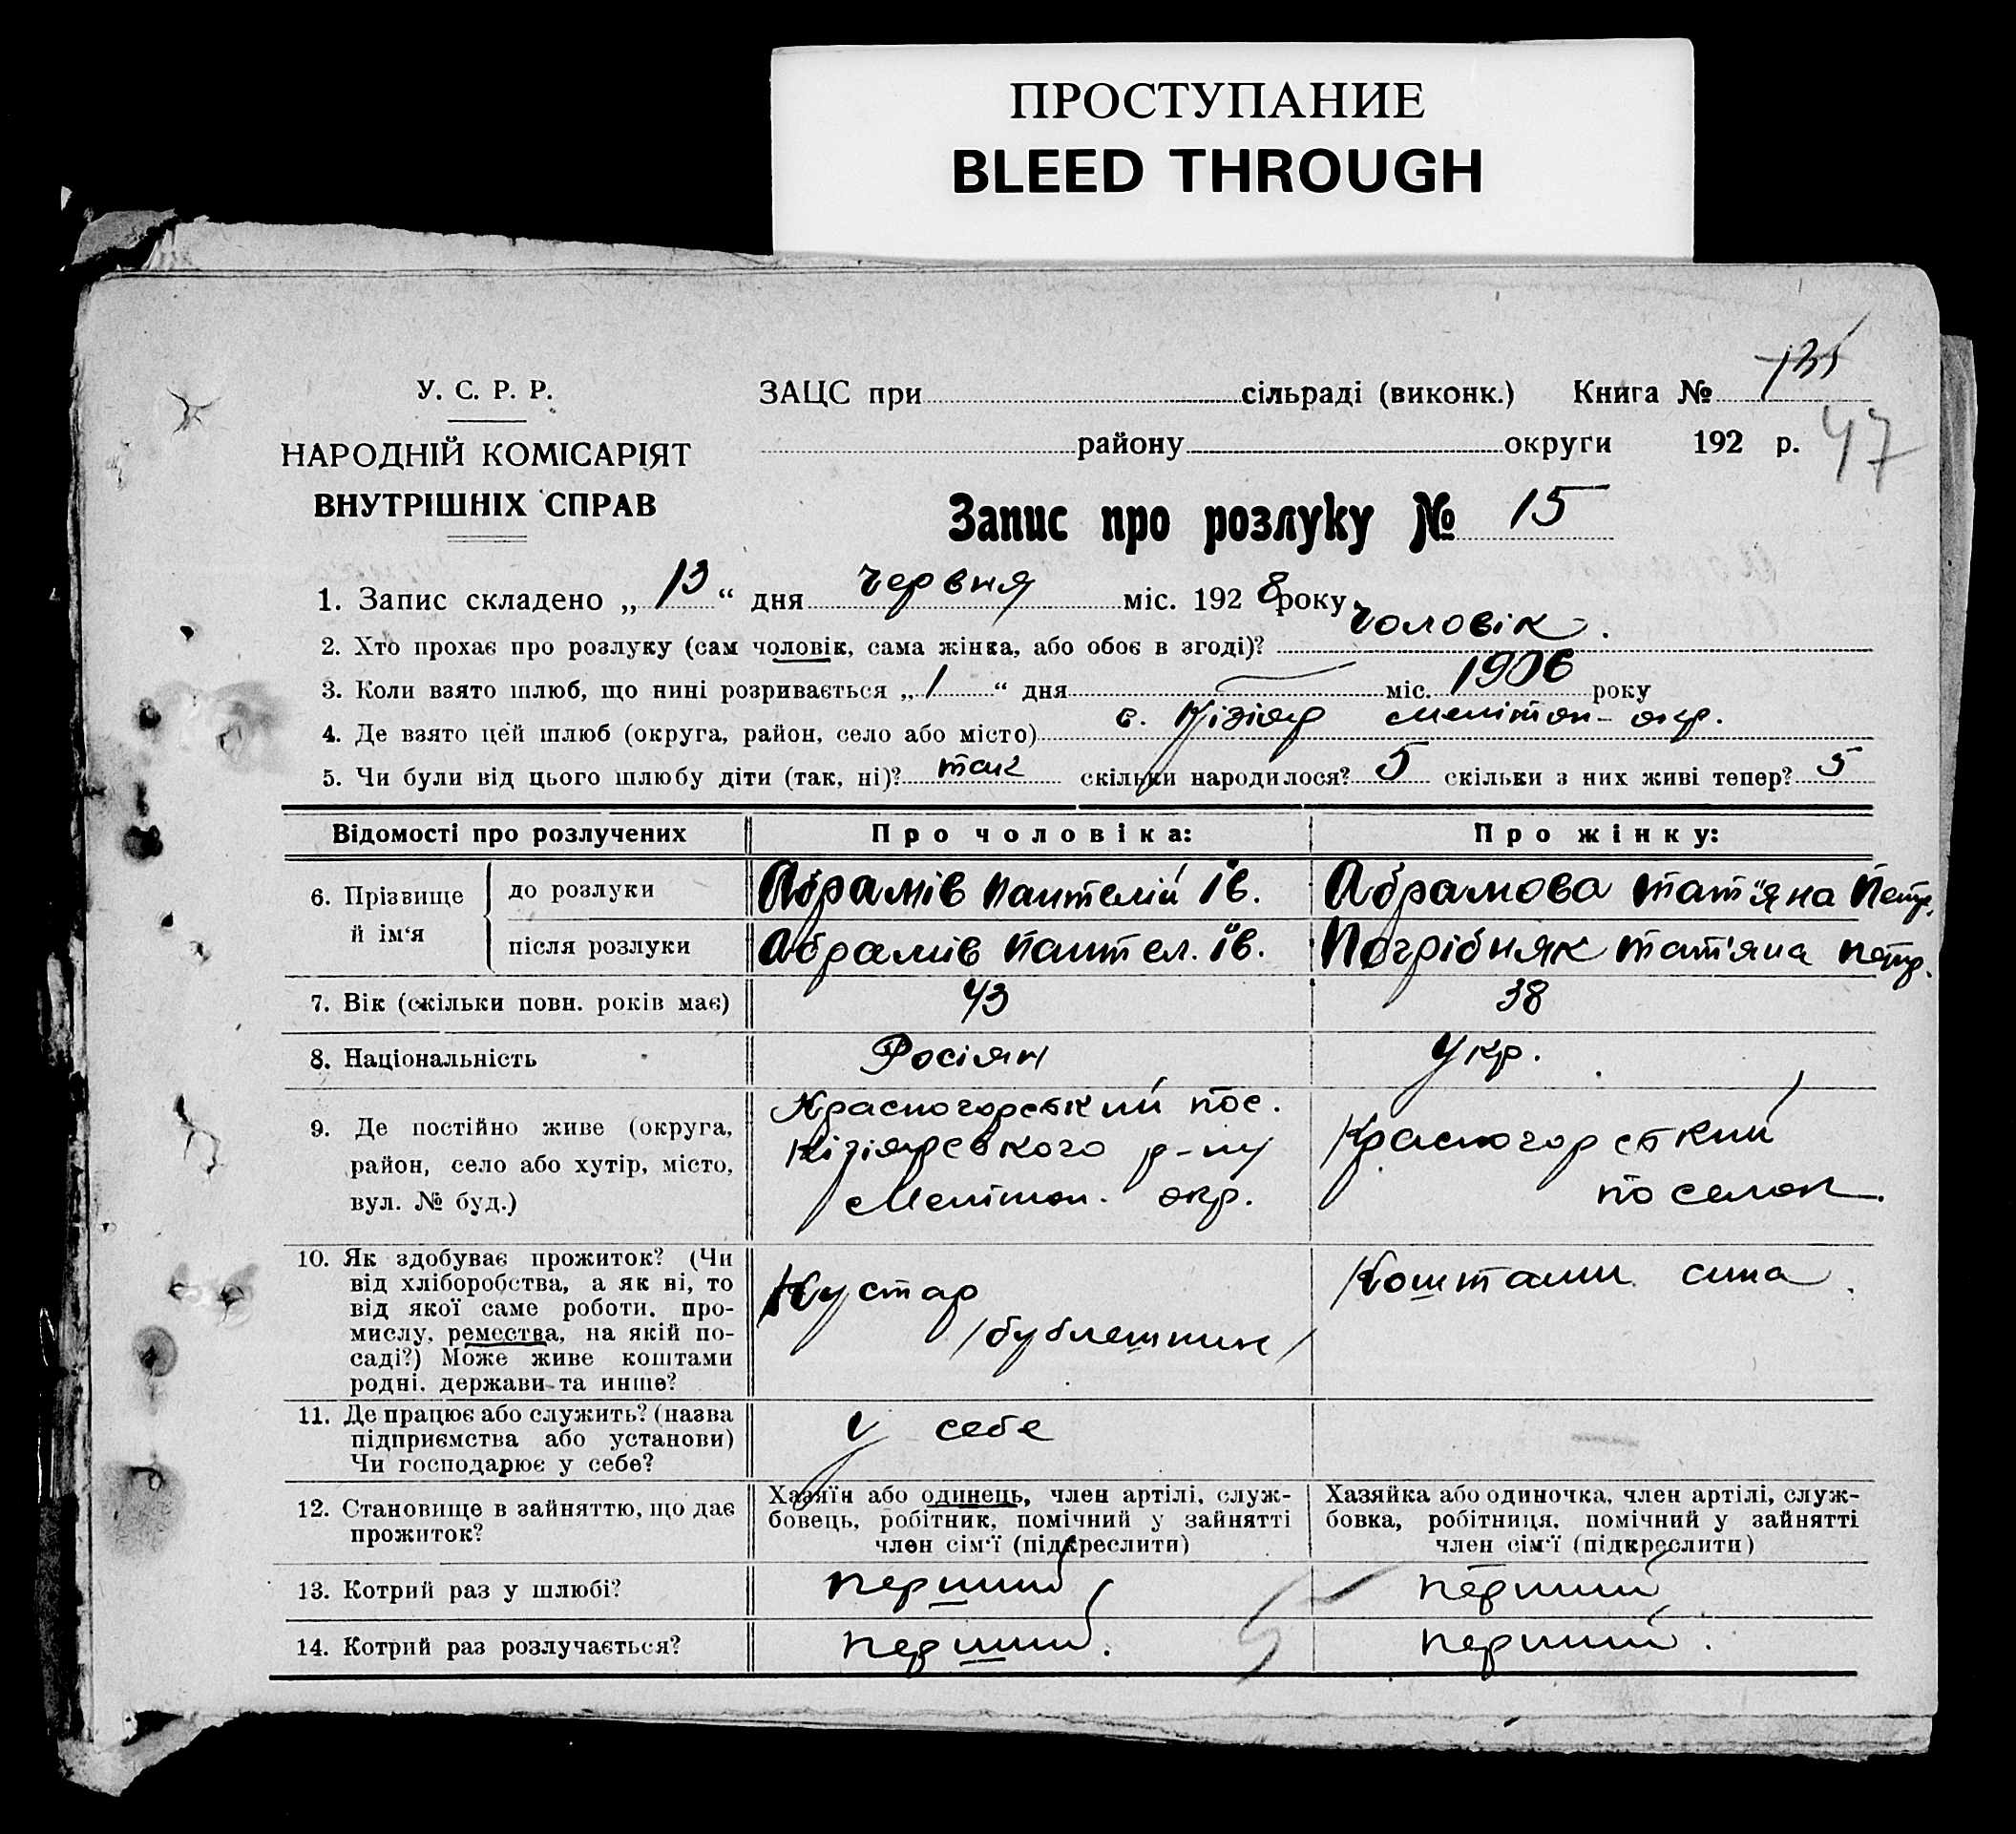 ПРОСТУПАНИЕ
BLEED THROUGH
У. С. Р. Р.
НАРОДНІЙ КОМІСАРІЯТ
ВНУТРІШНІХ СПРАВ
ЗАЦС при сільраді (виконк.) Книга № 135
району округи 192 р. 47
Запис про розлуку № 15
1. Запис складено „ 13 “ дня червня міс. 192 8 року
2. Хто прохає про розлуку (сам чоловік, сама жінка, або обоє в згоді)? чоловік.
3. Коли взято шлюб, що нині розривається „ 1 “ дня — міс. 1906 року
4. Де взято цей шлюб (округа, район, село або місто) с. Кізіяр Мелітоп- окр.
5. Чи були від цього шлюбу діти (так, ні)? так скільки народилося? 5 скільки з них живі тепер? 5
Відомості про розлучених Про чоловіка: Про жінку:
6. Прізвище й ім‘я
до розлуки Абрамів Пантелій Ів. Абрамова Тат'яна Петр.
після розлуки Абрамів Пантел. Ів. Погрібняк Тат'яна Петр.
7. Вік (скільки повн. років має) 43 38
8. Національність Росіян Укр.
9. Де постійно живе (округа,
район, село або хутір, місто,
вул. № буд.)
Красногорський пос.
Кізіярського р-ну
Мелітоп. окр.
Красногорський
поселок.
10. Як здобуває прожиток? (Чи
від хліборобства, а як ні, то
від якої саме роботи, про-
мислу, ремества, на якій по-
саді?) Може живе коштами
родні, держави та инше?
Кустар
/бублешник/
Коштами сина.
11. Де працює або служить? (назва
підприємства або установи)
Чи господарює у себе?
у себе
12. Становище в зайняттю, що дає
прожиток?
Хазяїн або одинець, член артілі, служ-
бовець, робітник, помічний у зайнятті
член сім‘ї (підкреслити)
Хазяйка або одиночка, член артілі, служ-
бовка, робітниця, помічний у зайнятті
член сім‘ї (підкреслити)
13. Котрий раз у шлюбі? перший перший
14. Котрий раз розлучається? перший. перший.